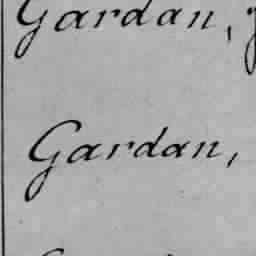 Gardan,
Gardan,